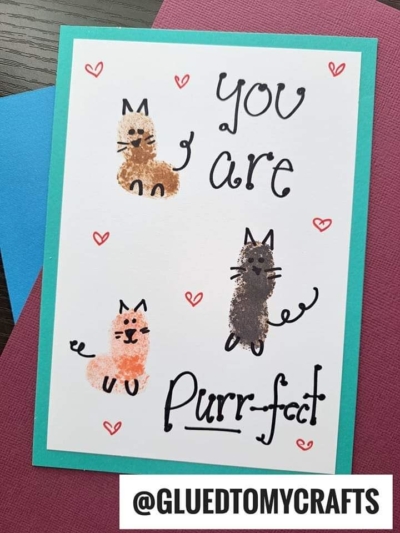 you
are
Purr-fect
@GLUEDTOMYCRAFTS